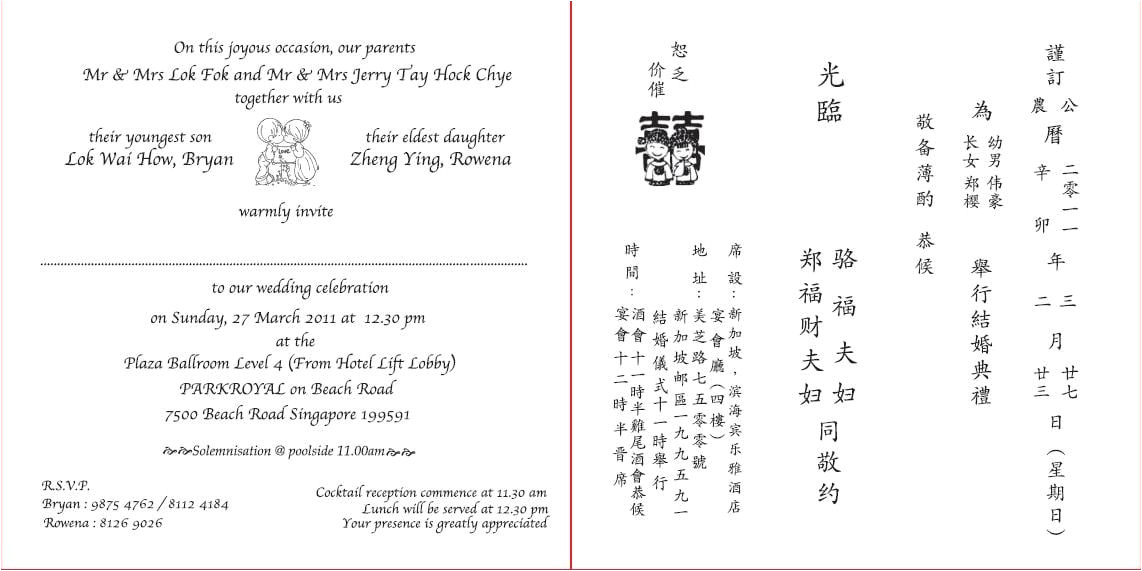 On this joyous occasion, our parents
Mr & Mrs Lok Fok and Mr & Mrs Jerry Tay Hock Chye
together with us
their youngest son
Lok Wai How, Bryan
Love
their eldest daughter
Zheng Ying, Rowena
warmly invite
to our wedding celebration
on Sunday, 27 March 2011 at 12.30 pm
at the
Plaza Ballroom Level 4 (From Hotel Lift Lobby)
PARKROYAL on Beach Road
7500 Beach Road Singapore 199591
Solemnisation @ poolside 11.00am
R.S.V.P.
Bryan : 9875 4762 / 8112 4184
Rowena : 8126 9026
Cocktail reception commence at 11.30 am
Lunch will be served at 12.30 pm
Your presence is greatly appreciated
謹訂
公農曆二零一一辛卯年三二月廿七廿三日(星期日)
為
幼男伟豪
长女郑樱
舉行結婚典禮
敬备薄酌 恭候
光臨
骆福夫妇
郑福财夫妇
同敬约
席設:新加坡,滨海宾乐雅酒店
宴會廳(四樓)
地址:美芝路七五零零號
新加坡邮區一九九五九一
結婚儀式十一時舉行
時間:酒會十一時半雞尾酒會恭候
宴會十二時半晋席
恕乏
价催
囍